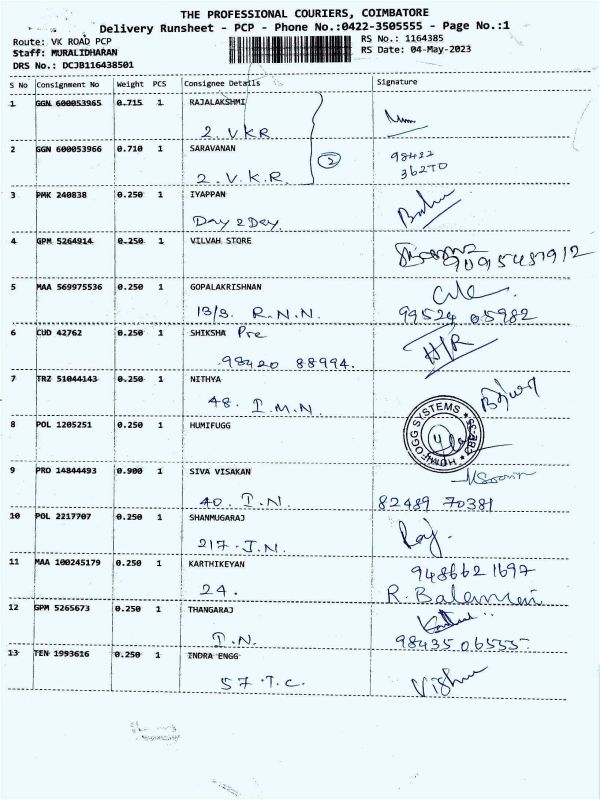 THE PROFESSIONAL COURIERS, COIMBATORE
Delivery Runsheet - PCP - Phone No.:0422-3505555 - Page No.:1
Route: VK ROAD PCP
RS No.: 1164385
Staff: MURALIDHARAN
RS Date: 04-May-2023
DRS No.: DCJB116438501
S No Consignment No Weight PCS Consignee Details Signature
1 GGN 600053965 0.715 1 RAJALAKSHMI
2. V.K.R
2 GGN 600053966 0.710 1 SARAVANAN
2. V.K.R.
2
98422
36270
3 PMK 240838 0.250 1 IYAPPAN
Day 2 Day.
4 GPM 5264914 0.250 1 VILVAH STORE
5 MAA 569975536 0.250 1 GOPALAKRISHNAN
13/3. R.N.N.
99524 05982
6 CUD 42762 0.250 1 SHIKSHA Pre
98420 88994.
H/R
7 TRZ 51044143 0.250 1 NITHYA
48. I.M.N.
8 POL 1205251 0.250 1 HUMIFUGG
HUMIFOGG SYSTEMS
9 PRO 14844493 0.900 1 SIVA VISAKAN
40. I.N.
82489 70381
10 POL 2217707 0.250 1 SHANMUGARAJ
217. I.N.
Raj.
11 MAA 100245179 0.250 1 KARTHIKEYAN
24.
9486621697
12 GPM 5265673 0.250 1 THANGARAJ
I.N.
98435 06555.
13 TEN 1993616 0.250 1 INDRA ENGG
57. T.C.
Vishnu